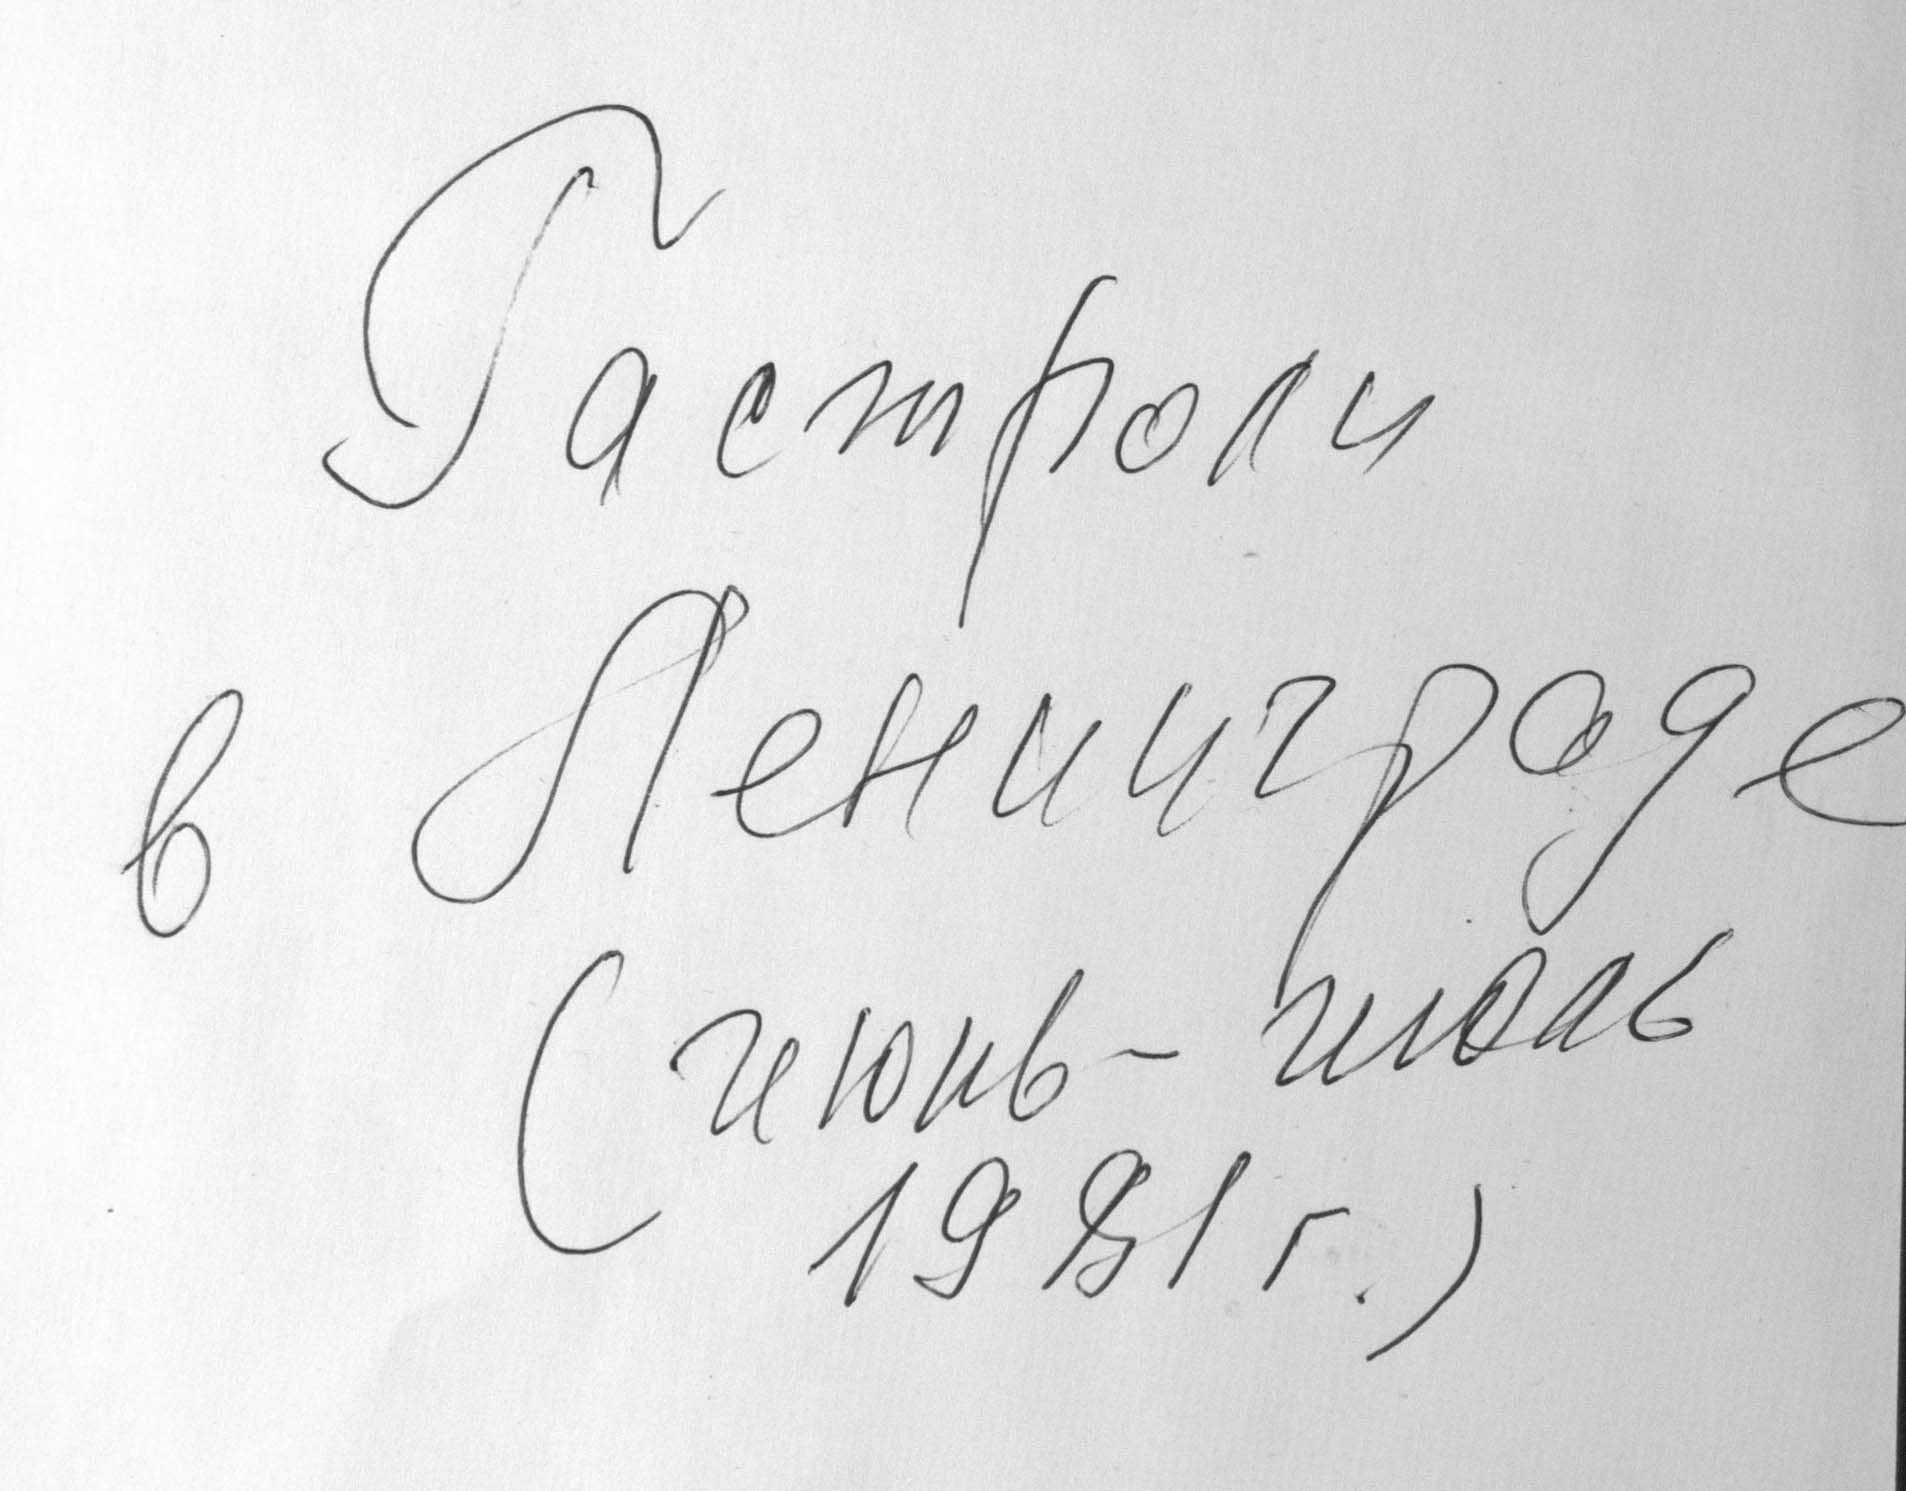 Гастроли
в Ленинграде
(июнь - июль
1981 г.)